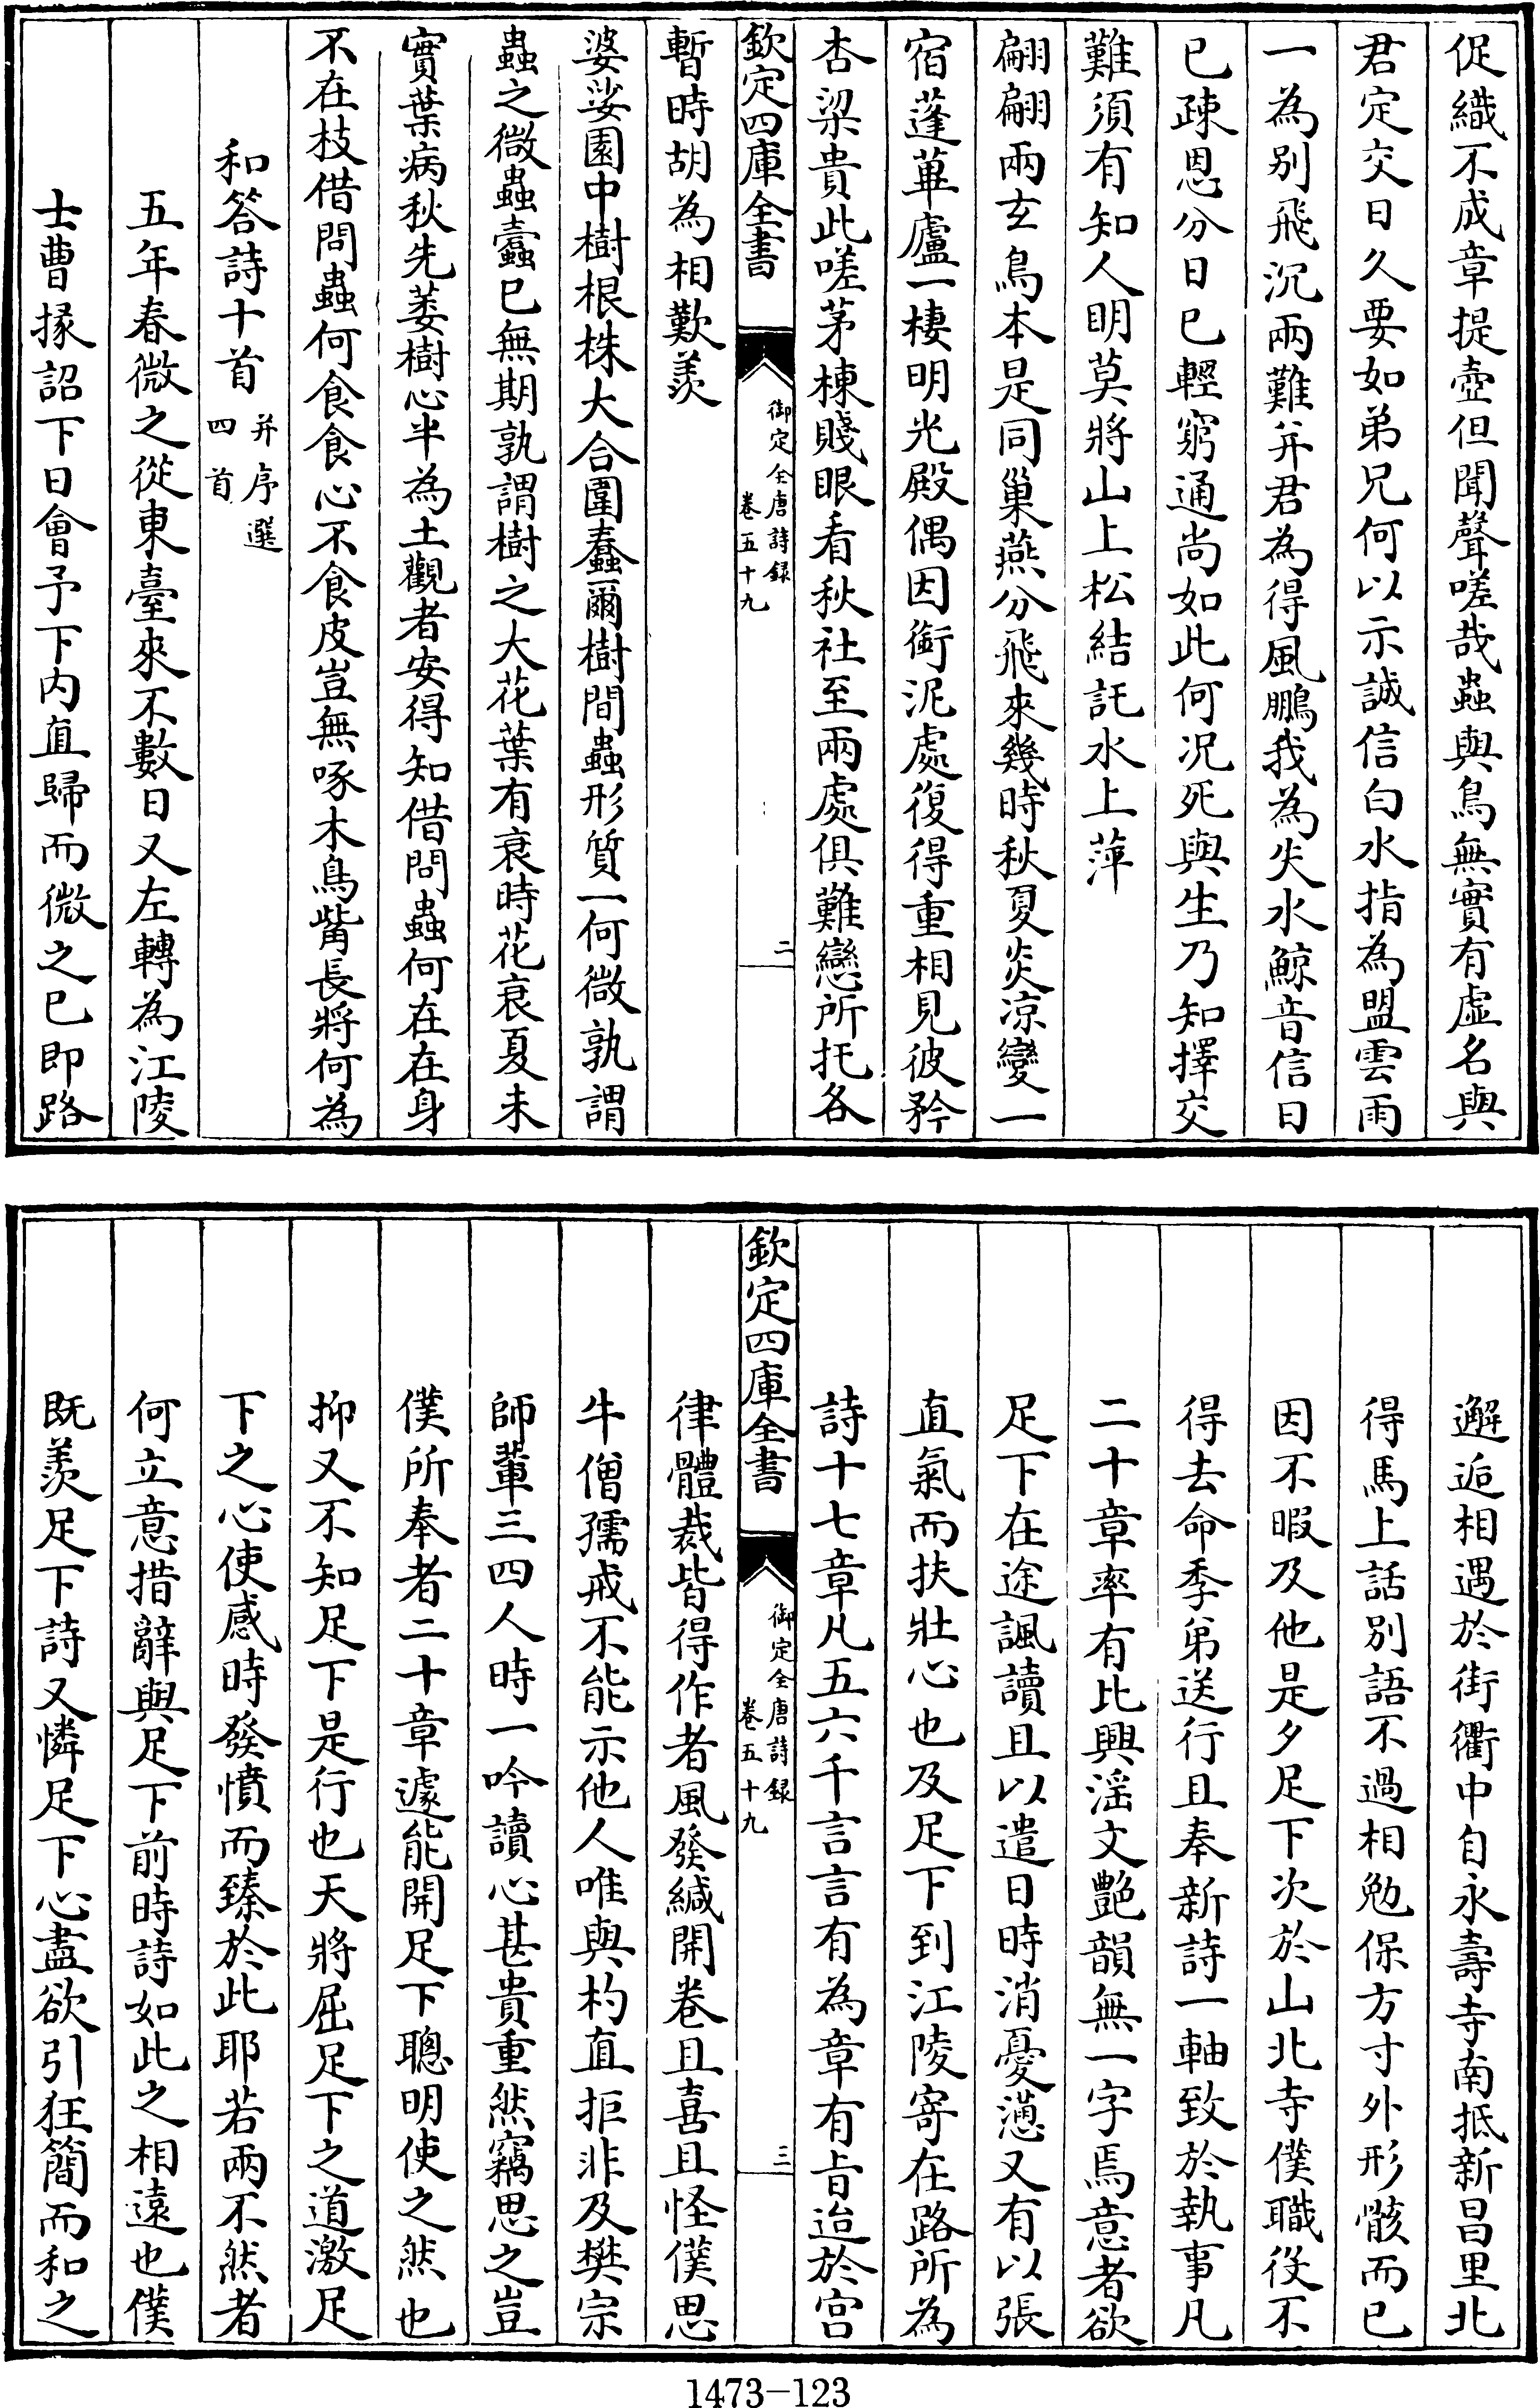 促織不成章提壺但聞聲嗟哉蟲與鳥無實有虛名與
君定交日久要如弟兄何以示誠信白水指為盟雲雨
一為別飛沉兩難并君為得風鵬我為失水鯨音信日
已疎恩分日已輕窮通尚如此何况死與生乃知擇交
難須有知人明莫將山上松結託水上萍
翩翩兩玄鳥本是同巢燕分飛來幾時秋夏炎凉變一
宿蓬蓽廬一棲明光殿偶因銜泥處復得重相見彼矜
杏梁貴此嗟茅棟賤眼看秋社至兩處俱難戀所托各
欽定四庫全書
御定全唐詩録
卷五十九
二
暫時胡為相歎羨
婆娑園中樹根株大合圍蠢爾樹間蟲形質一何微孰謂
蟲之微蟲蠹已無期孰謂樹之大花葉有衰時花衰夏未
實葉病秋先萎樹心半為土觀者安得知借問蟲何在在身
不在枝借問蟲何食食心不食皮豈無啄木鳥觜長將何為
和答詩十首
并序選
四首
五年春微之從東臺來不數日又左轉為江陵
士曹掾詔下日會予下内直歸而微之已即路
邂逅相遇於街衢中自永壽寺南抵新昌里北
得馬上話別語不過相勉保方寸外形骸而已
因不暇及他是夕足下次於山北寺僕職役不
得去命季弟送行且奉新詩一軸致於執事凡
二十章率有比興滛文艶韻無一字焉意者欲
足下在途諷讀且以遣日時消憂懣又有以張
直氣而扶壯心也及足下到江陵寄在路所為
詩十七章凡五六千言言有為章有㫖迨於宫
欽定四庫全書
御定全唐詩録
卷五十九
三
律體裁皆得作者風發緘開卷且喜且怪僕思
牛僧孺戒不能示他人唯與杓直拒非及樊宗
師輩三四人時一吟讀心甚貴重然竊思之豈
僕所奉者二十章遽能開足下聰明使之然也
抑又不知足下是行也天將屈足下之道激足
下之心使感時發憤而臻於此耶若兩不然者
何立意措辭與足下前時詩如此之相遠也僕
既羨足下詩又憐足下心盡欲引狂簡而和之
1473—123